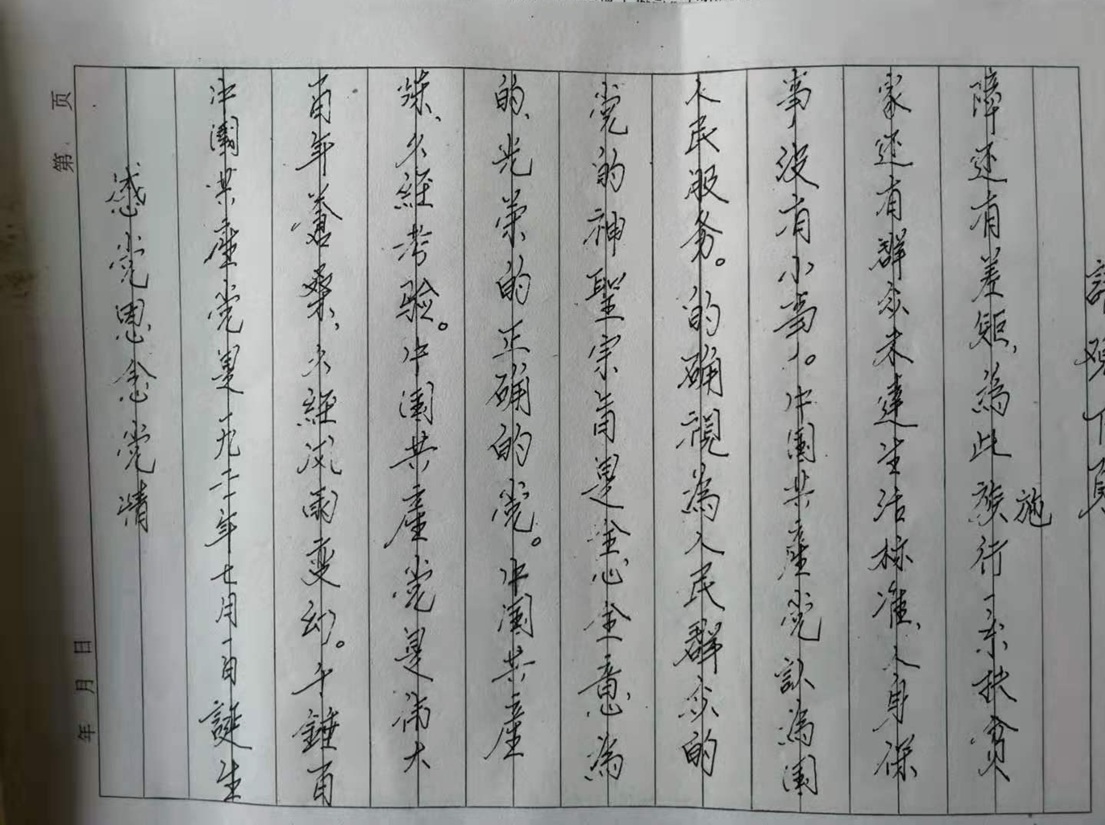 第 页
年 月 日
感党恩念党情
中國共產党是一九二一年七月一日誕生
百年滄桑,久經风雨变幻。千錘百
煉、久經考验。中国共產党是偉大
的、光荣的正确的党。中國共產
党的神聖宗旨是全心全意為
人民服务。的确視為人民群众的
事,没有小事。中國共產党認為国
家还有群众未達生活标准、人身保
障还有差距,為此施行一系扶贫
施
下頁